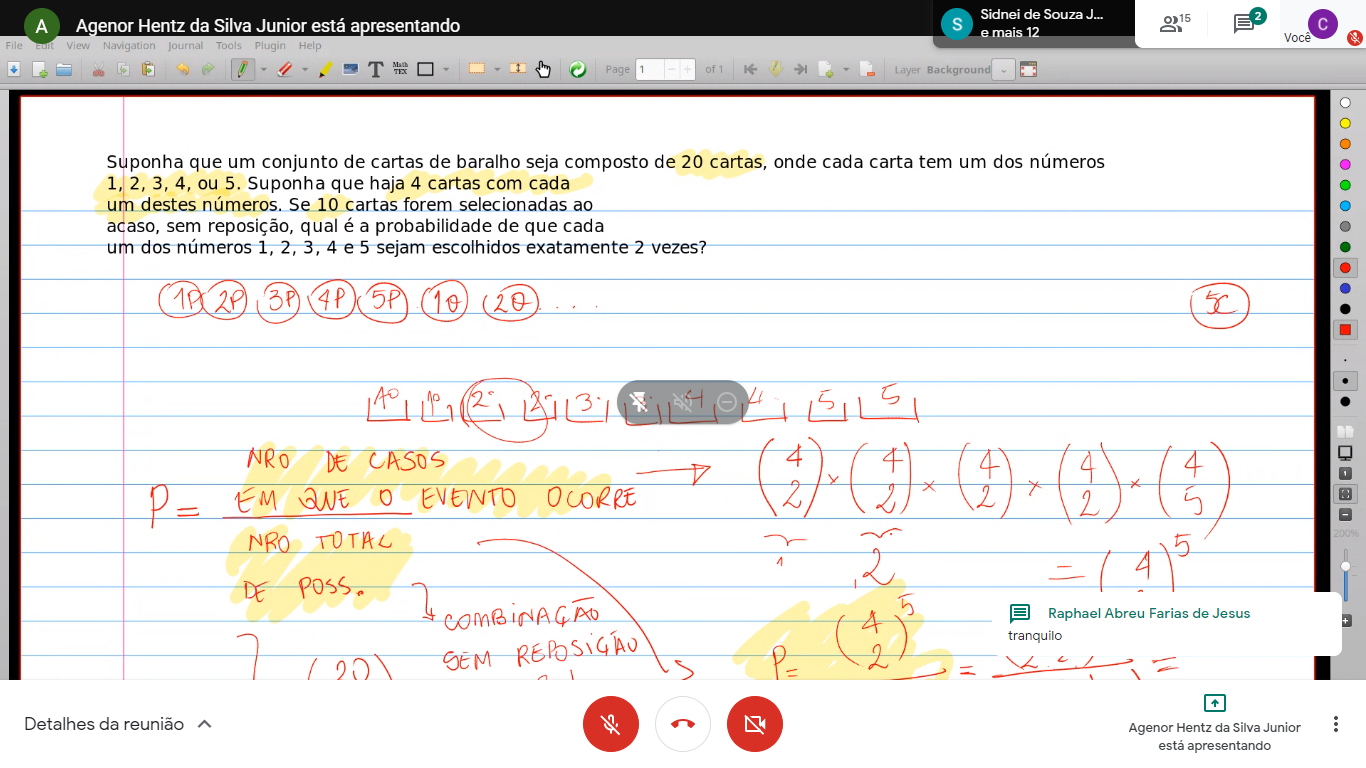 A Agenor Hentz da Silva Junior está apresentando
S Sidnei de Souza J...
e mais 12
15
2
Você
C
File Edit View Navigation Journal Tools Plugin Help
T Math TEX Page 1 of 1 Layer Background
Suponha que um conjunto de cartas de baralho seja composto de 20 cartas, onde cada carta tem um dos números
1, 2, 3, 4, ou 5. Suponha que haja 4 cartas com cada
um destes números. Se 10 cartas forem selecionadas ao
acaso, sem reposição, qual é a probabilidade de que cada
um dos números 1, 2, 3, 4 e 5 sejam escolhidos exatamente 2 vezes?
1P 2P 3P 4P 5P 1O 2O . . . . 5C
1º 1º 2º 2º 3º 4 4 5 5
NRO DE CASOS
P = EM QUE O EVENTO OCORRE → (4 2) × (4 2) × (4 2) × (4 2) × (4 5)
NRO TOTAL
DE POSS.
1 2
= (4
)^5
COMBINAÇÃO
SEM REPOSIÇÃO
(20)
P = (4 2)^5 = =
200%
Raphael Abreu Farias de Jesus
tranquilo
Detalhes da reunião
Agenor Hentz da Silva Junior
está apresentando